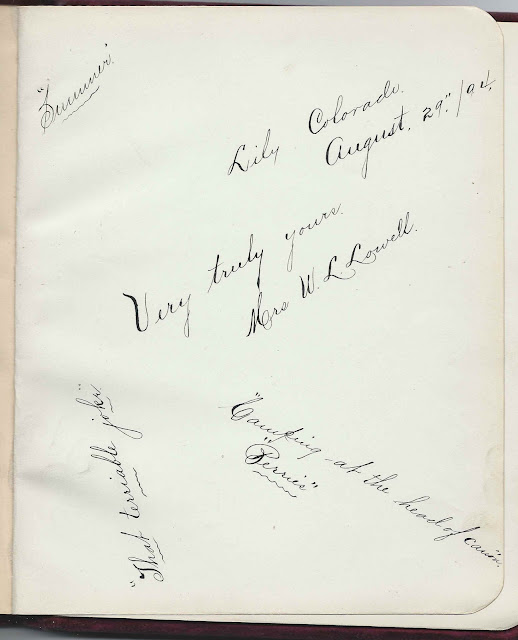 "Summer"
Lily Colorado.
August. 29". /94.
Very truly yours.
Mrs W. L. Lowell.
"That terriable joke"
"Camping at the head of cañon."
"Perries"